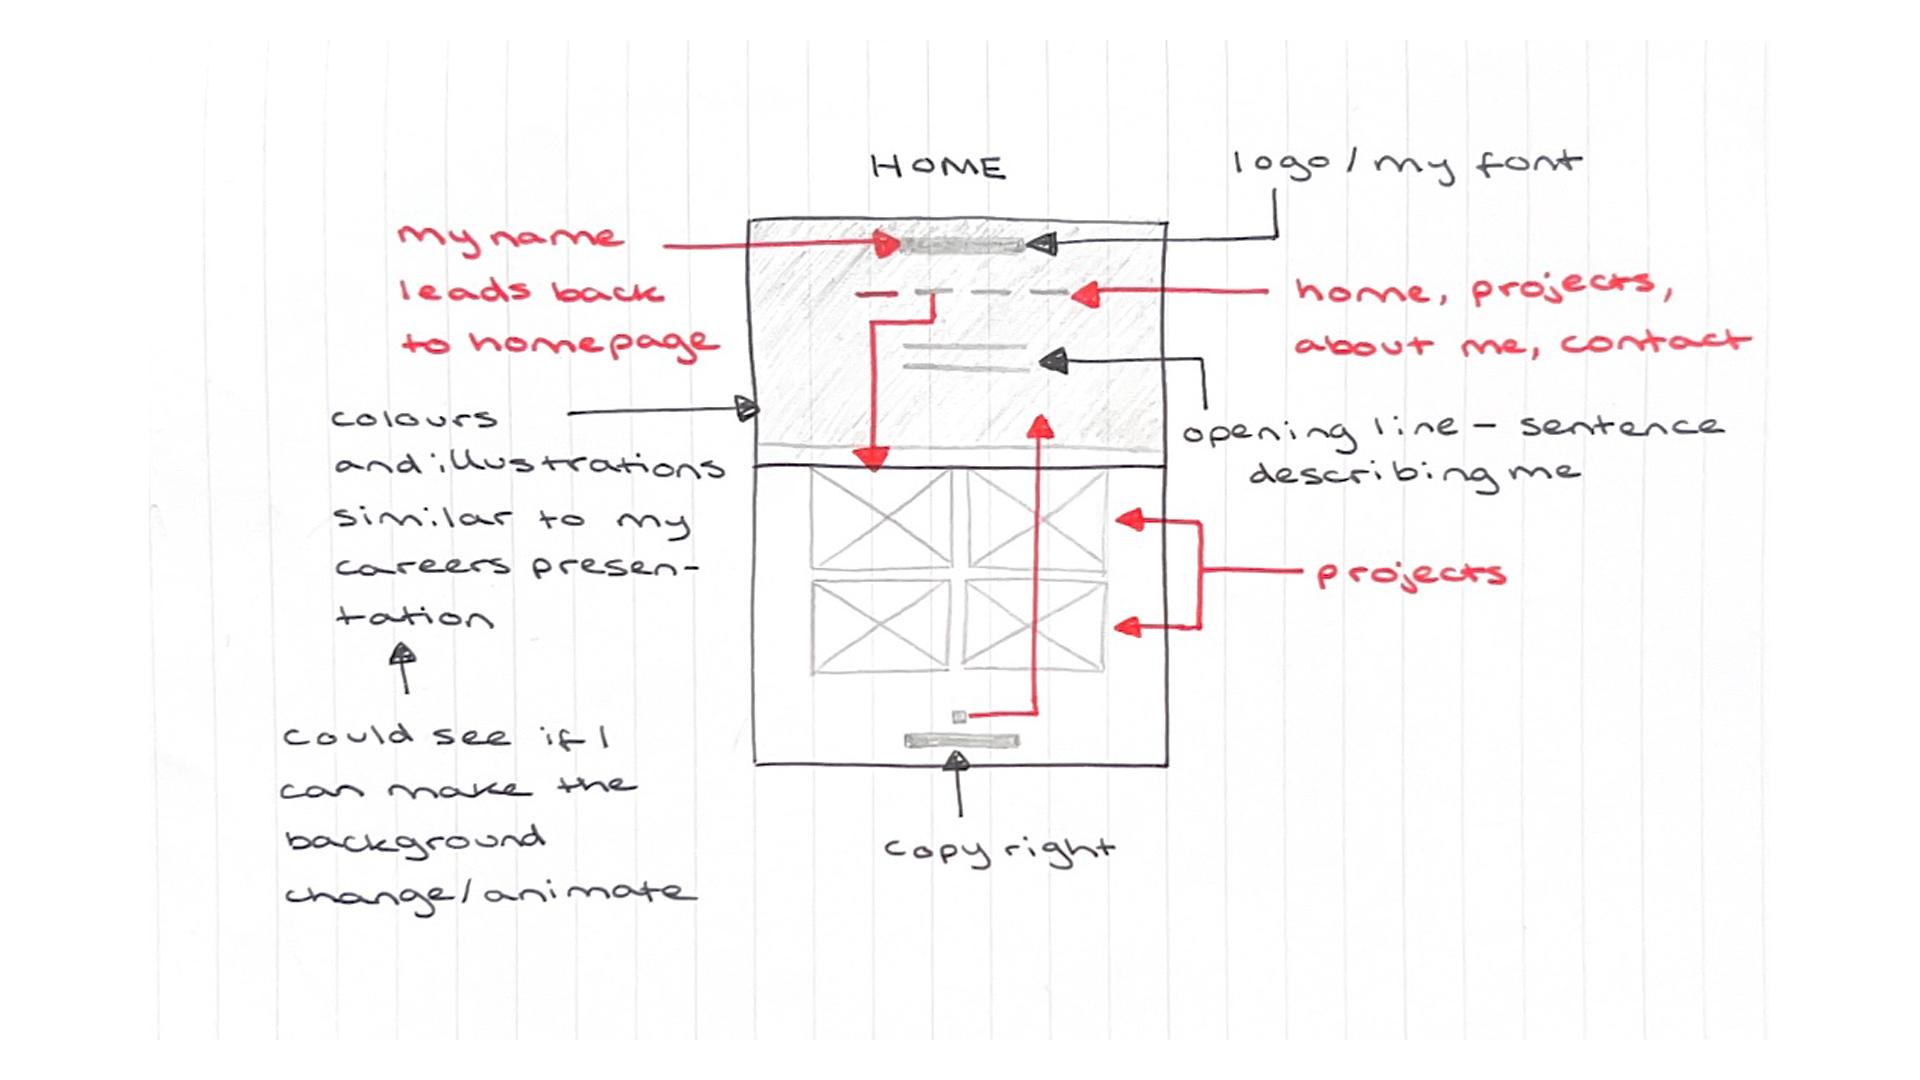 HOME
logo / my font
my name
leads back
to homepage
home, projects,
about me, contact
colours
and illustrations
similar to my
careers presen-
tation
opening line - sentence
describing me
projects
could see if I
can make the
background
change/animate
copyright